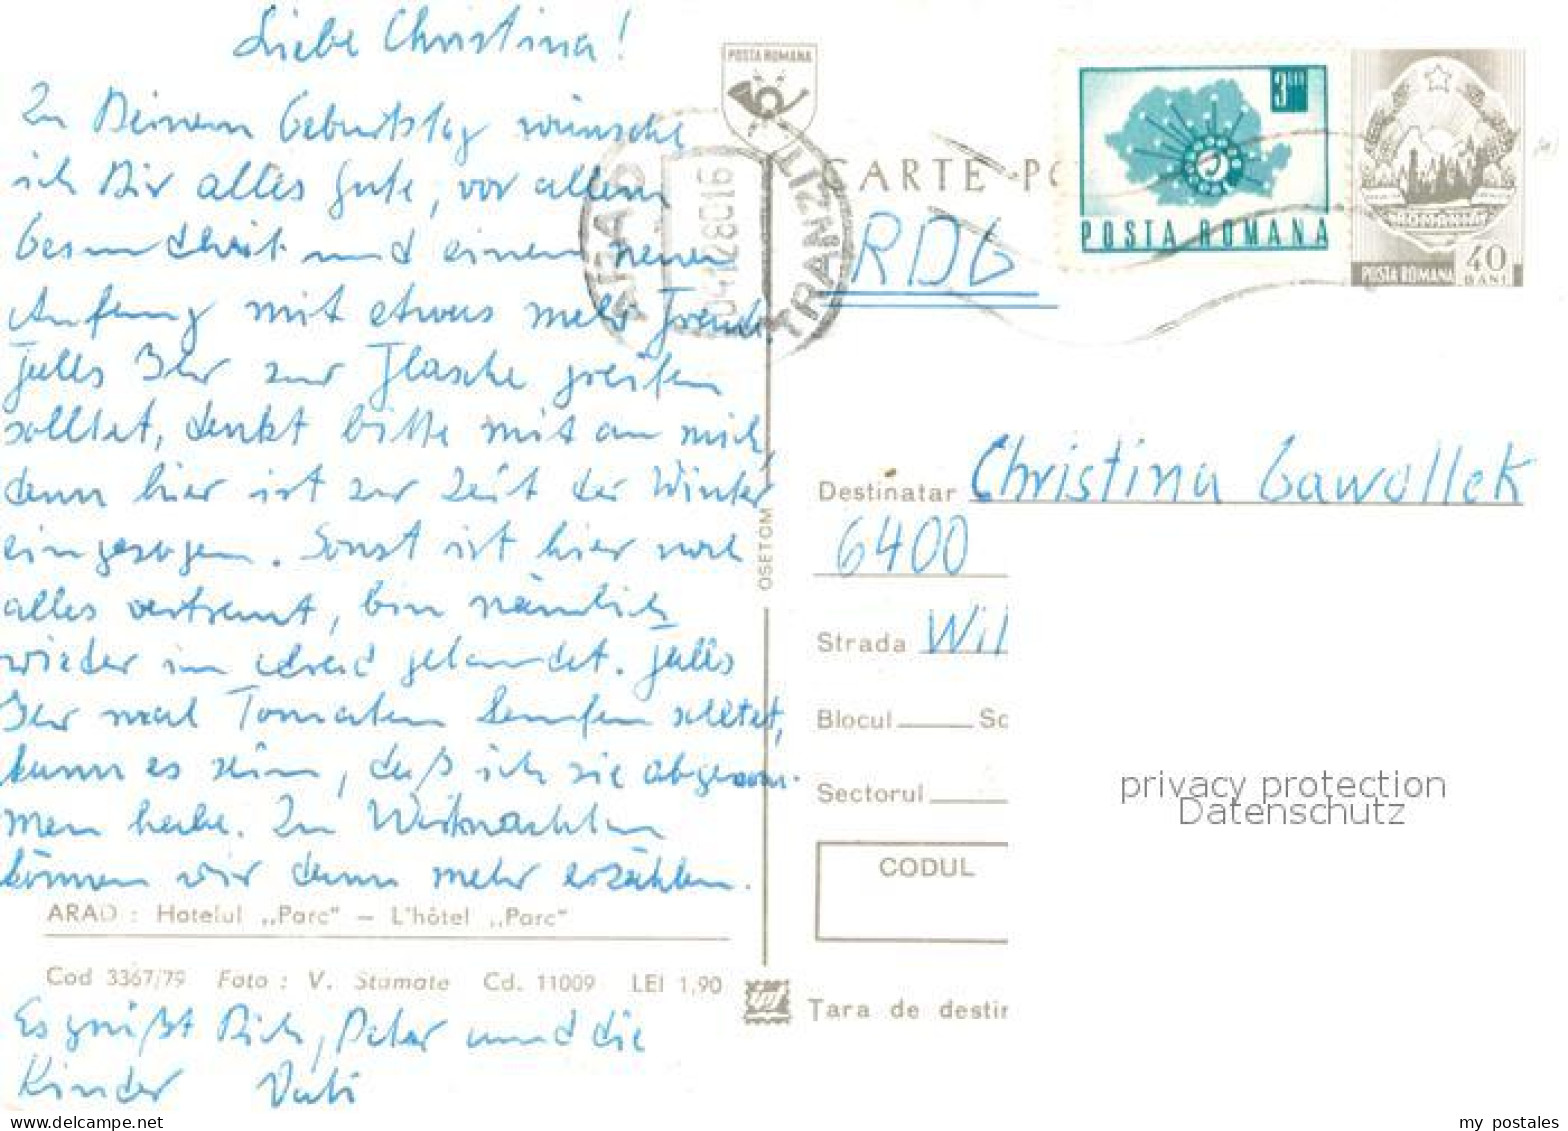 Liebe Christina!
Zu Deinem Geburtstag wünsche
ich Dir alles Gute, vor allem
Gesundheit und einen neuen
Anfang mit etwas mehr Freude.
Falls Ihr zur Flasche greifen
solltet, denkt bitte mit an mich,
denn hier ist zur Zeit der Winter
eingezogen. Sonst ist hier noch
alles vertraut, bin nämlich
wieder in Arad gelandet. Falls
Ihr mal Tomaten kaufen solltet,
kann es sein, daß ich sie abgenom-
men habe. Zu Weihnachten
können wir dann mehr erzählen.
ARAD : Hotelul „Parc" – L'hôtel „Parc"
Cod 3367/79 Foto : V. Stamate Cd. 11009 LEI 1,90
Es grüßt Dich, Peter und die
Kinder Vati
OSETCOM
POSTA ROMANA
ARAD
TRANZIT
CARTE PO
3 LEI
POSTA ROMANA
ROMANIA
POSTA ROMANA 40 BANI
RDG
Destinatar Christina Gawollek
6400
Strada Wil
Blocul Sc
Sectorul
privacy protection
Datenschutz
CODUL
Țara de destin
my postales